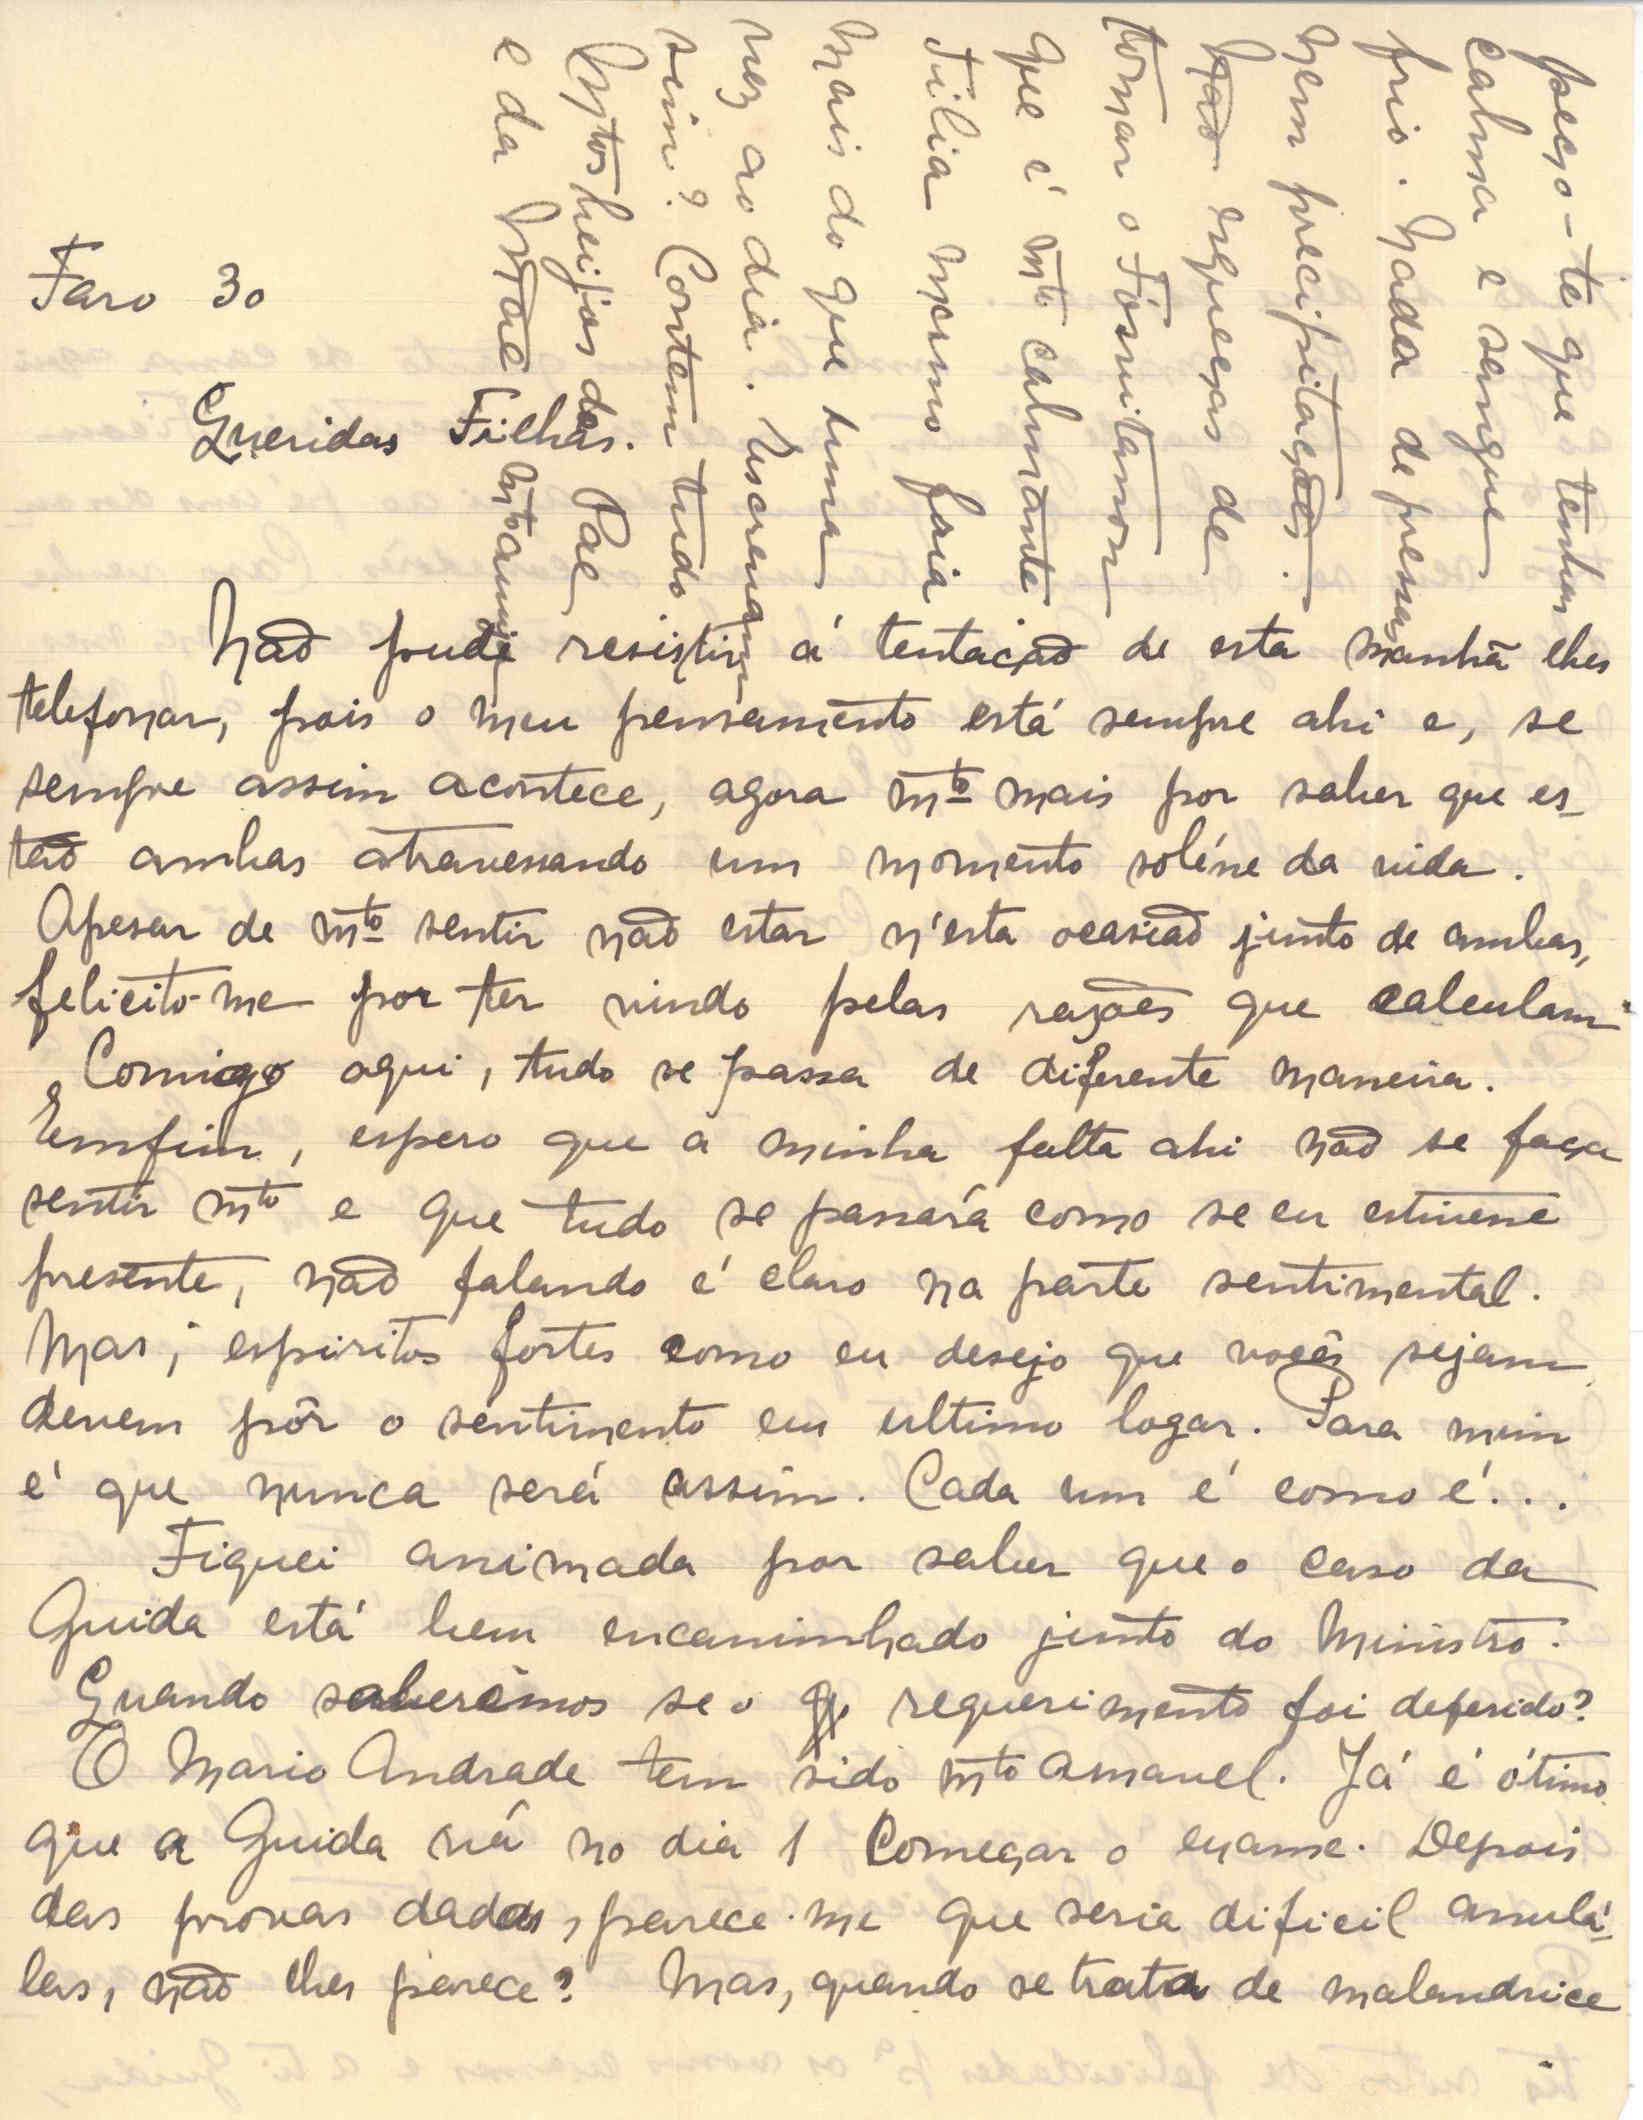 Faro 30
Queridas Filhas.
Não pude resistir á tentação de esta manhã lhes
telefonar, pois o meu pensamento está sempre ahi e, se
sempre assim acontece, agora mto mais por saber que es-
tão ambas atravessando um momento soléne da vida.
Apesar de mto sentir não estar n'esta ocasião junto de ambas,
felicito-me por ter vindo pelas razões que calculam.
Comigo aqui, tudo se passa de diferente maneira.
Emfim, espero que a minha falta ahi não se faça
sentir mto e que tudo se passará como se eu estivesse
presente, não falando é claro na parte sentimental.
Mas, espiritos fortes como eu desejo que vocês sejam
devem pôr o sentimento em ultimo logar. Para mim
é que nunca será assim. Cada um é como é...
Fiquei animada por saber que o caso da
Guida está bem encaminhado junto do Ministro.
Quando saberêmos se o requerimento foi deferido?
O Mario Andrade tem sido mto amavel. Já é ótimo
que a Guida vá no dia 1 começar o exame. Depois
das provas dadas, parece-me que seria dificil anulá-
las, não lhes parece? Mas, quando se trata de malandrice
peço-te que tenhas
calma e sangue
frio. Nada de pressas
nem precipitações.
Não esqueças de
tomar o Fósvitamon
que é mto calmante
Tilia mesmo fria
mais do que uma
vez ao dia. Escrevam
sim? Contem tudo
Mtos beijos do Pae
e da Mãe mto amiga